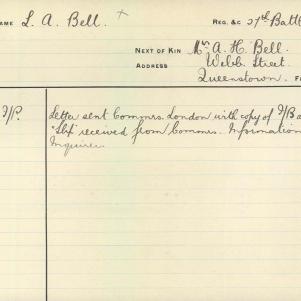 NAME L. A. Bell. REG. &C 27th Batt
NEXT OF KIN Mrs. A. H. Bell.
ADDRESS Webb Street.
Queenstown.
Letter sent Commrs. London with copy of
"Slip" received from Commrs. Information
Inquirer.